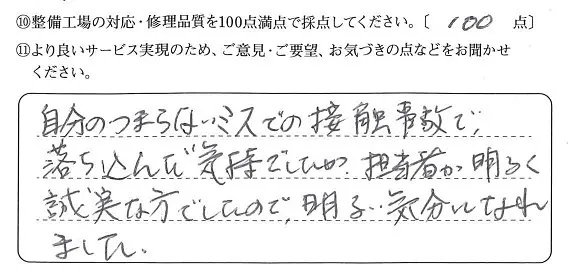 ⑩整備工場の対応・修理品質を100点満点で採点してください。〔 100 点〕
⑪より良いサービス実現のため、ご意見・ご要望、お気づきの点などをお聞かせ
ください。
自分のつまらないミスでの接触事故で、
落ち込んだ気持でしたが、担当者が明るく
誠実な方でしたので、明るい気分になれ
ました。